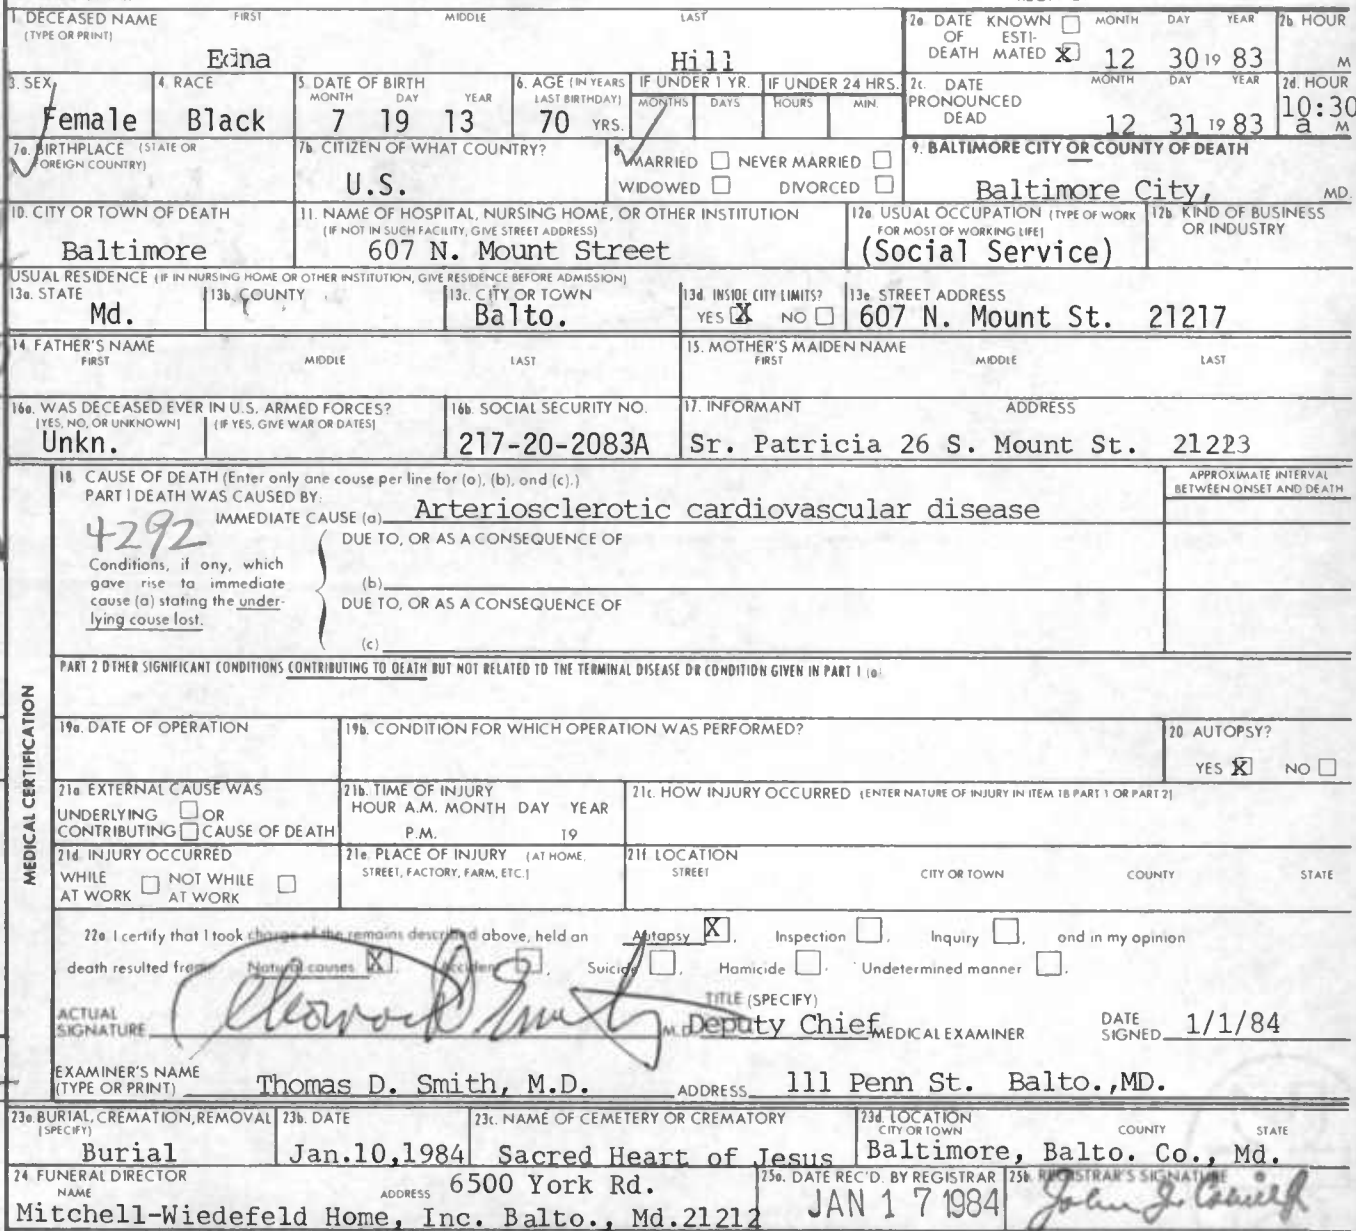 1 DECEASED NAME FIRST MIDDLE LAST
(TYPE OR PRINT)
Edna Hill
2a DATE OF DEATH KNOWN ☐ ESTIMATED ☒ MONTH DAY YEAR
12 30 19 83
2b HOUR
M
3. SEX
Female
4. RACE
Black
5. DATE OF BIRTH
MONTH DAY YEAR
7 19 13
6. AGE (IN YEARS LAST BIRTHDAY)
70 YRS.
IF UNDER 1 YR. IF UNDER 24 HRS.
MONTHS DAYS HOURS MIN.
2c. DATE PRONOUNCED DEAD MONTH DAY YEAR
12 31 19 83
2d. HOUR
10:30
a M
7a. BIRTHPLACE (STATE OR
OREIGN COUNTRY)
7b. CITIZEN OF WHAT COUNTRY?
U.S.
8 MARRIED ☐ NEVER MARRIED ☐
WIDOWED ☐ DIVORCED ☐
9. BALTIMORE CITY OR COUNTY OF DEATH
Baltimore City, MD.
10. CITY OR TOWN OF DEATH
Baltimore
11. NAME OF HOSPITAL, NURSING HOME, OR OTHER INSTITUTION
(IF NOT IN SUCH FACILITY, GIVE STREET ADDRESS)
607 N. Mount Street
12a USUAL OCCUPATION (TYPE OF WORK
FOR MOST OF WORKING LIFE)
(Social Service)
12b KIND OF BUSINESS
OR INDUSTRY
USUAL RESIDENCE (IF IN NURSING HOME OR OTHER INSTITUTION, GIVE RESIDENCE BEFORE ADMISSION)
13a. STATE
Md.
13b. COUNTY
13c. CITY OR TOWN
Balto.
13d. INSIDE CITY LIMITS?
YES ☒ NO ☐
13e STREET ADDRESS
607 N. Mount St. 21217
14. FATHER'S NAME
FIRST MIDDLE LAST
15. MOTHER'S MAIDEN NAME
FIRST MIDDLE LAST
16a. WAS DECEASED EVER IN U.S. ARMED FORCES?
(YES, NO, OR UNKNOWN) (IF YES, GIVE WAR OR DATES)
Unkn.
16b. SOCIAL SECURITY NO.
217-20-2083A
17. INFORMANT ADDRESS
Sr. Patricia 26 S. Mount St. 21223
MEDICAL CERTIFICATION
18 CAUSE OF DEATH (Enter only one cause per line for (a), (b), and (c).)
PART I DEATH WAS CAUSED BY:
APPROXIMATE INTERVAL
BETWEEN ONSET AND DEATH
IMMEDIATE CAUSE (a) Arteriosclerotic cardiovascular disease
4292
DUE TO, OR AS A CONSEQUENCE OF
Conditions, if any, which
gave rise to immediate
cause (a) stating the under-
lying cause last.
(b)
DUE TO, OR AS A CONSEQUENCE OF
(c)
PART 2 OTHER SIGNIFICANT CONDITIONS CONTRIBUTING TO DEATH BUT NOT RELATED TO THE TERMINAL DISEASE OR CONDITION GIVEN IN PART I (a)
19a. DATE OF OPERATION
19b. CONDITION FOR WHICH OPERATION WAS PERFORMED?
20 AUTOPSY?
YES ☒ NO ☐
21a EXTERNAL CAUSE WAS
UNDERLYING ☐ OR
CONTRIBUTING ☐ CAUSE OF DEATH
21b. TIME OF INJURY
HOUR A.M. MONTH DAY YEAR
P.M. 19
21c. HOW INJURY OCCURRED (ENTER NATURE OF INJURY IN ITEM 18 PART 1 OR PART 2)
21d INJURY OCCURRED
WHILE AT WORK ☐ NOT WHILE AT WORK ☐
21e PLACE OF INJURY (AT HOME,
STREET, FACTORY, FARM, ETC.)
21f. LOCATION
STREET CITY OR TOWN COUNTY STATE
22a I certify that I took charge of the remains described above, held an Autopsy ☒, Inspection ☐, Inquiry ☐, and in my opinion
death resulted from Natural causes ☒, Accident ☐, Suicide ☐, Homicide ☐. Undetermined manner ☐.
ACTUAL
SIGNATURE
M.D.
TITLE (SPECIFY)
Deputy Chief MEDICAL EXAMINER
DATE
SIGNED 1/1/84
EXAMINER'S NAME
(TYPE OR PRINT) Thomas D. Smith, M.D. ADDRESS 111 Penn St. Balto.,MD.
23a. BURIAL, CREMATION, REMOVAL
(SPECIFY)
Burial
23b. DATE
Jan.10,1984
23c. NAME OF CEMETERY OR CREMATORY
Sacred Heart of Jesus
23d. LOCATION
CITY OR TOWN COUNTY STATE
Baltimore, Balto. Co., Md.
24 FUNERAL DIRECTOR
NAME ADDRESS 6500 York Rd.
Mitchell-Wiedefeld Home, Inc. Balto., Md.21212
25a. DATE REC'D. BY REGISTRAR
JAN 17 1984
25b. REGISTRAR'S SIGNATURE